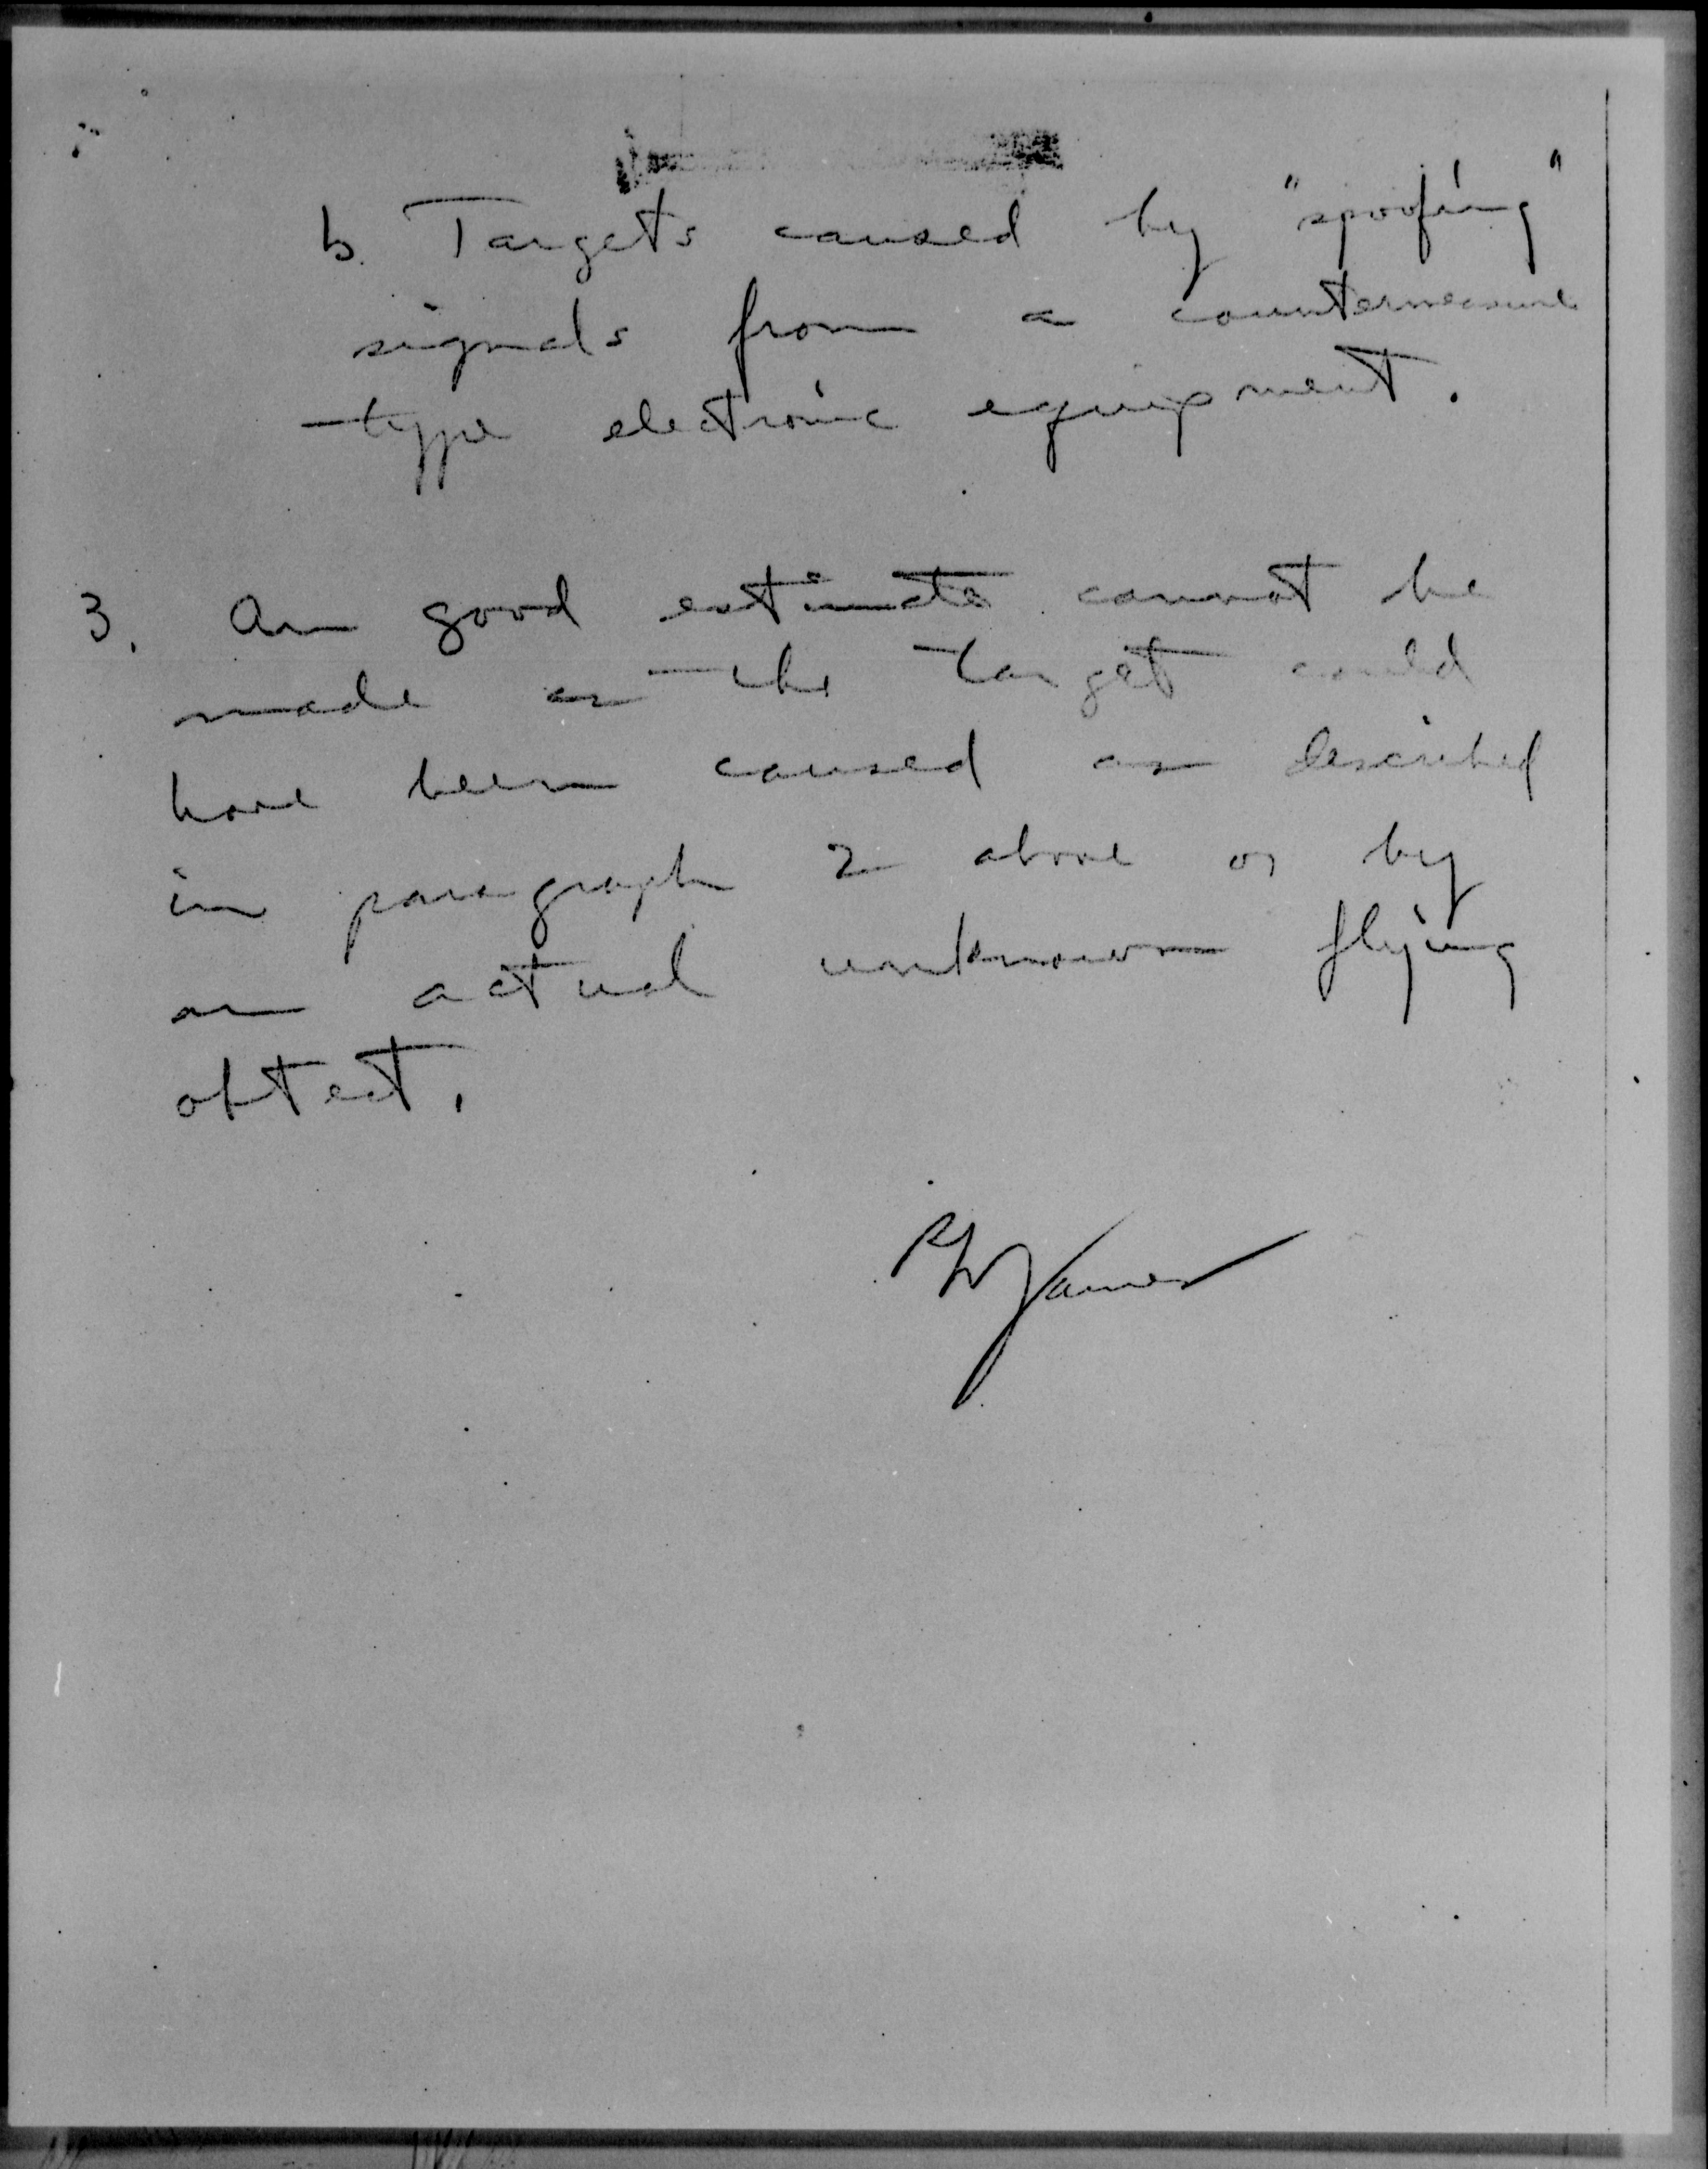 b. Targets caused by "spoofing"
signals from a countermeasure
type electronic equipment.
3. An good estimate cannot be
made as the target could
have been caused as described
in paragraph 2 above or by
an actual unknown flying
obtect.
RW James